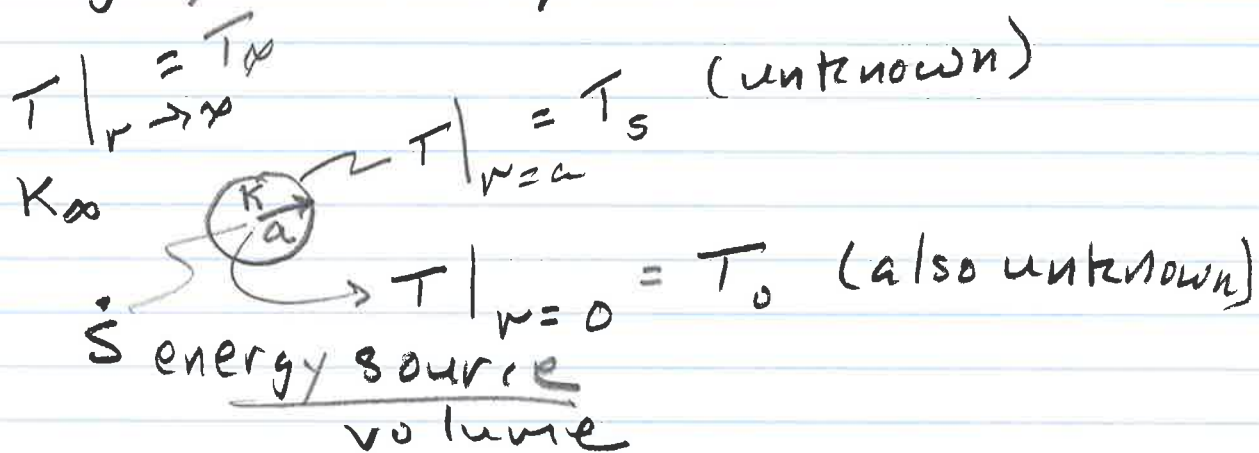 T|r→∞ = T∞
T|r=a = Ts (unknown)
K∞
K
a
T|r=0 = T₀ (also unknown)
Ṡ energy source
volume